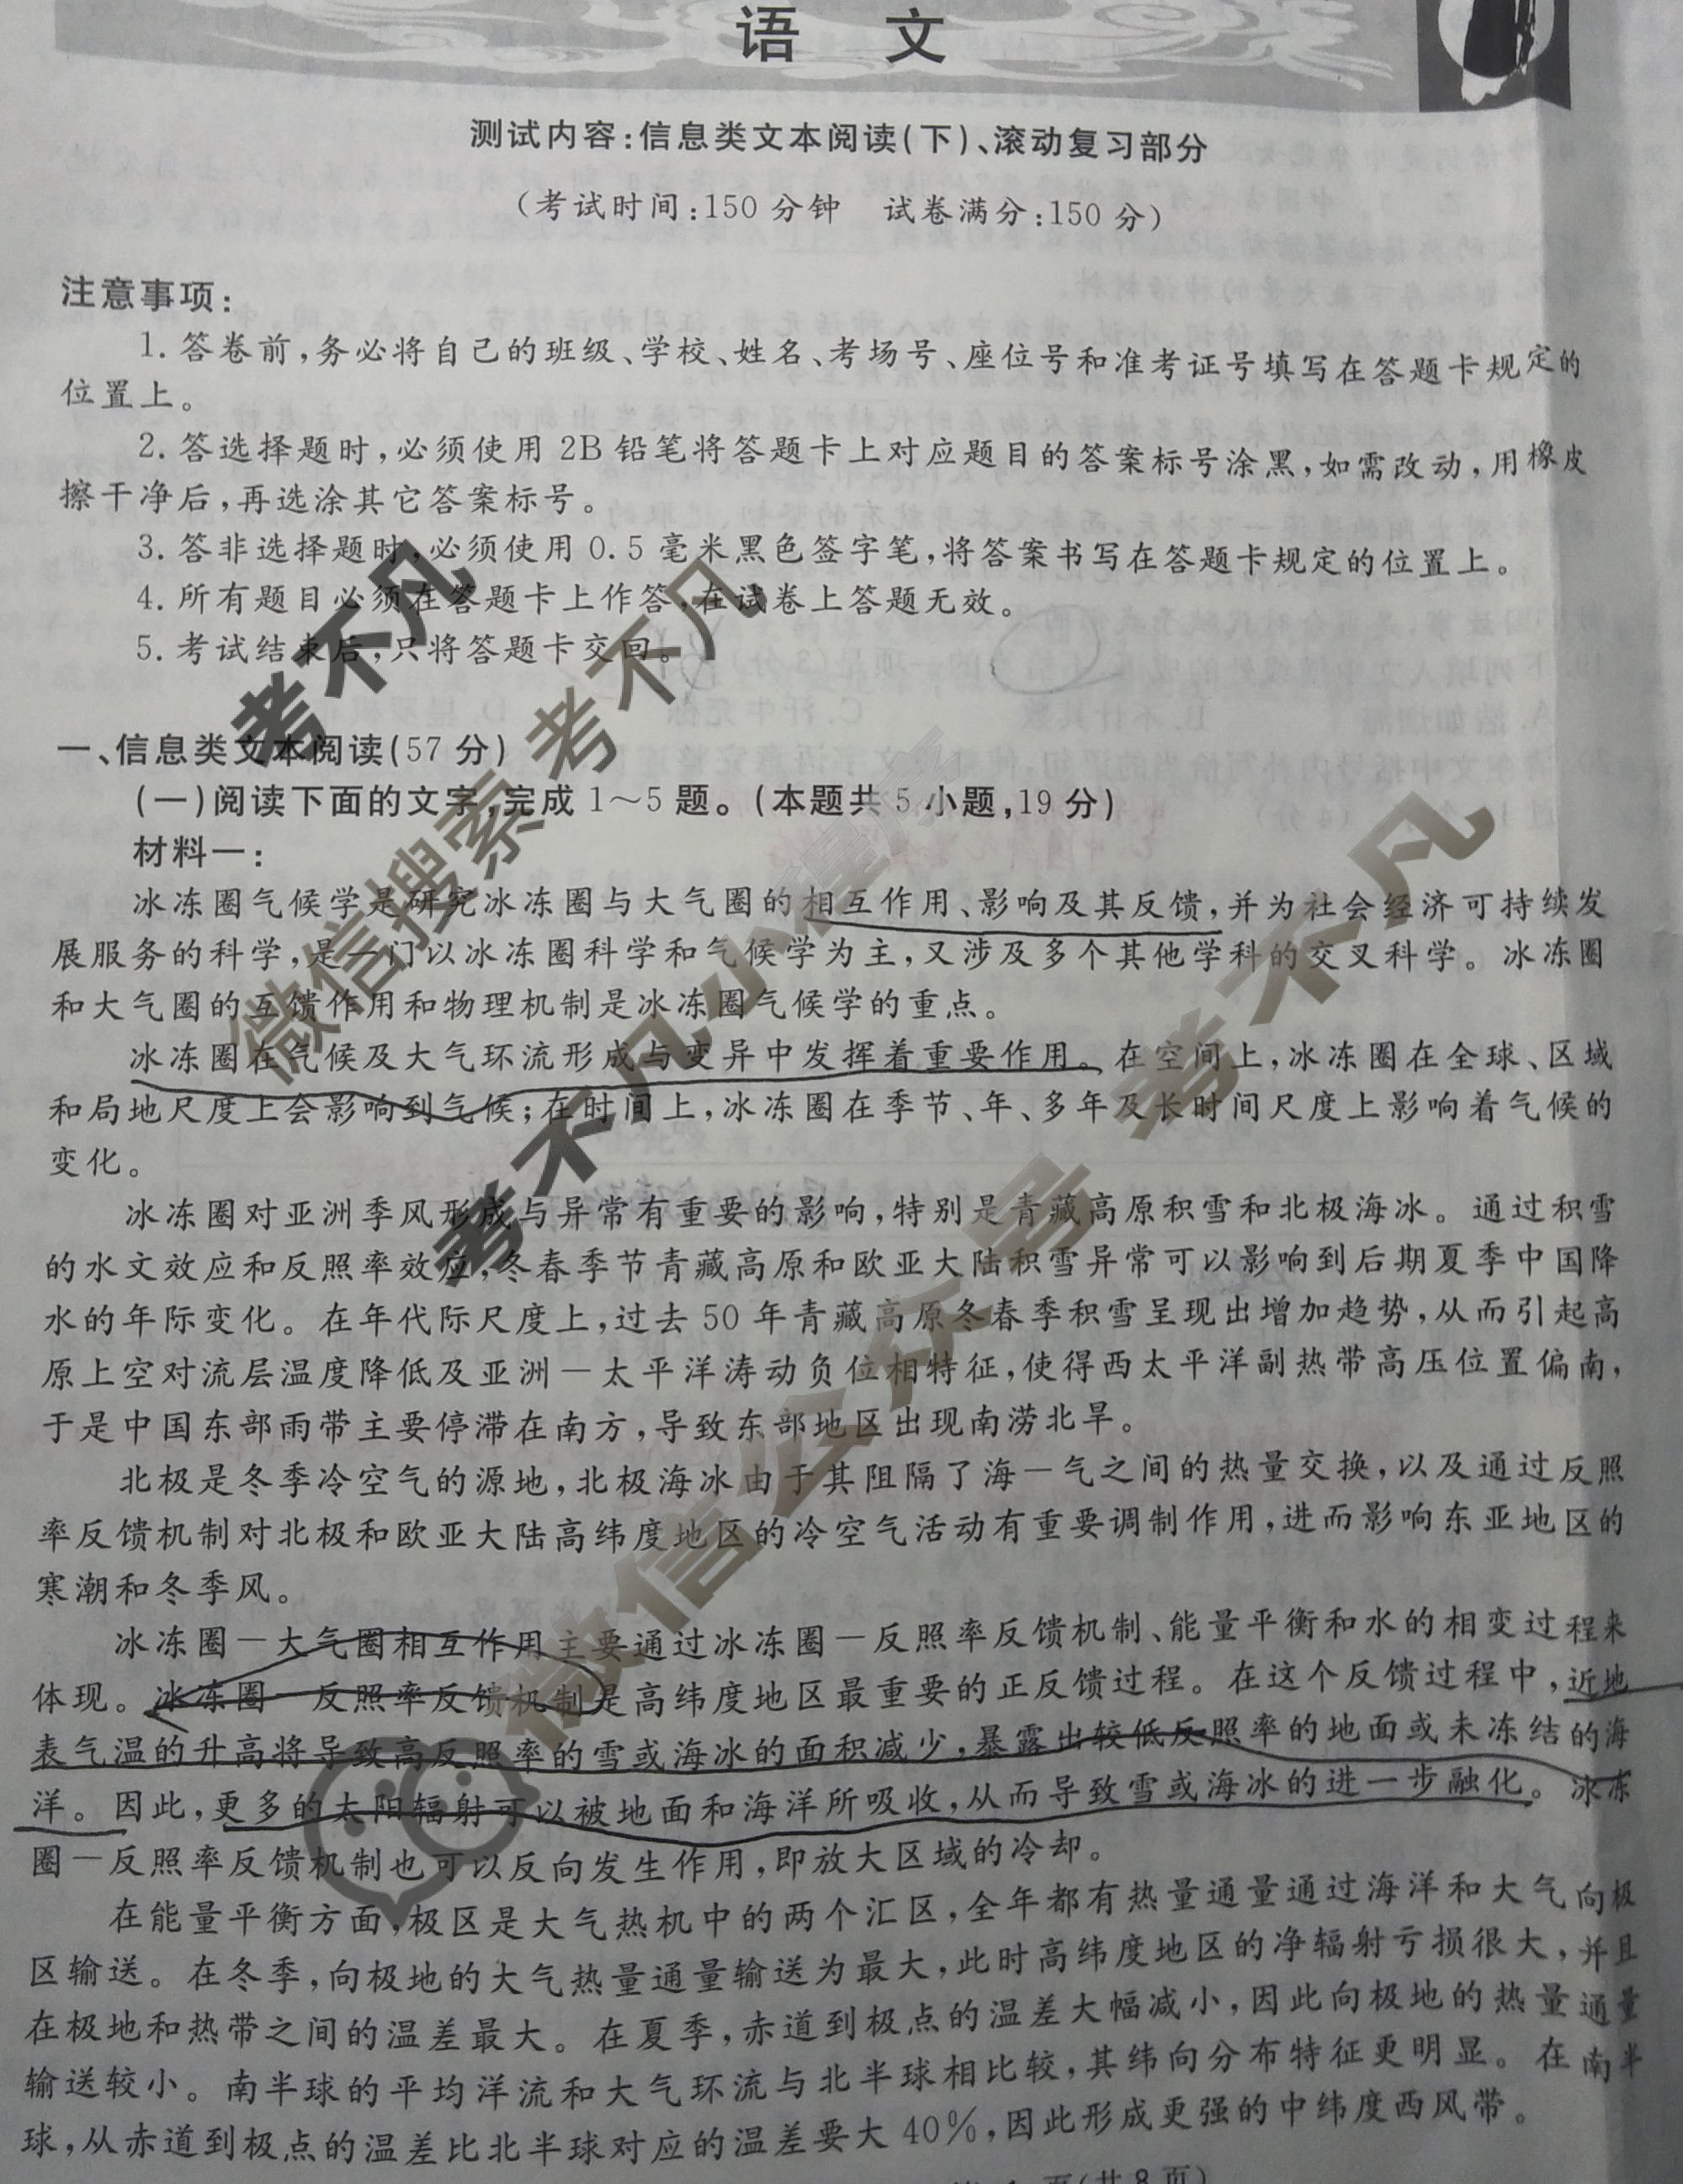 语 文
测试内容:信息类文本阅读(下)、滚动复习部分
(考试时间:150 分钟 试卷满分:150 分)
注意事项:
1. 答卷前,务必将自己的班级、学校、姓名、考场号、座位号和准考证号填写在答题卡规定的
位置上。
2. 答选择题时,必须使用 2B 铅笔将答题卡上对应题目的答案标号涂黑,如需改动,用橡皮
擦干净后,再选涂其它答案标号。
3. 答非选择题时,必须使用 0.5 毫米黑色签字笔,将答案书写在答题卡规定的位置上。
4. 所有题目必须在答题卡上作答,在试卷上答题无效。
5. 考试结束后,只将答题卡交回。
一、信息类文本阅读(57 分)
(一)阅读下面的文字,完成 1~5 题。(本题共 5 小题,19 分)
材料一:
冰冻圈气候学是研究冰冻圈与大气圈的相互作用、影响及其反馈,并为社会经济可持续发
展服务的科学,是一门以冰冻圈科学和气候学为主,又涉及多个其他学科的交叉科学。冰冻圈
和大气圈的互馈作用和物理机制是冰冻圈气候学的重点。
冰冻圈在气候及大气环流形成与变异中发挥着重要作用。在空间上,冰冻圈在全球、区域
和局地尺度上会影响到气候;在时间上,冰冻圈在季节、年、多年及长时间尺度上影响着气候的
变化。
冰冻圈对亚洲季风形成与异常有重要的影响,特别是青藏高原积雪和北极海冰。通过积雪
的水文效应和反照率效应,冬春季节青藏高原和欧亚大陆积雪异常可以影响到后期夏季中国降
水的年际变化。在年代际尺度上,过去 50 年青藏高原冬春季积雪呈现出增加趋势,从而引起高
原上空对流层温度降低及亚洲－太平洋涛动负位相特征,使得西太平洋副热带高压位置偏南,
于是中国东部雨带主要停滞在南方,导致东部地区出现南涝北旱。
北极是冬季冷空气的源地,北极海冰由于其阻隔了海－气之间的热量交换,以及通过反照
率反馈机制对北极和欧亚大陆高纬度地区的冷空气活动有重要调制作用,进而影响东亚地区的
寒潮和冬季风。
冰冻圈－大气圈相互作用主要通过冰冻圈－反照率反馈机制、能量平衡和水的相变过程来
体现。冰冻圈－反照率反馈机制是高纬度地区最重要的正反馈过程。在这个反馈过程中,近地
表气温的升高将导致高反照率的雪或海冰的面积减少,暴露出较低反照率的地面或未冻结的海
洋。因此,更多的太阳辐射可以被地面和海洋所吸收,从而导致雪或海冰的进一步融化。冰冻
圈－反照率反馈机制也可以反向发生作用,即放大区域的冷却。
在能量平衡方面,极区是大气热机中的两个汇区,全年都有热量通量通过海洋和大气向极
区输送。在冬季,向极地的大气热量通量输送为最大,此时高纬度地区的净辐射亏损很大,并且
在极地和热带之间的温差最大。在夏季,赤道到极点的温差大幅减小,因此向极地的热量通量
输送较小。南半球的平均洋流和大气环流与北半球相比较,其纬向分布特征更明显。在南半
球,从赤道到极点的温差比北半球对应的温差要大 40%,因此形成更强的中纬度西风带。
页(共 8 页)
考不凡
微信搜索 考不凡
考不凡小程序
微信公众号 考不凡